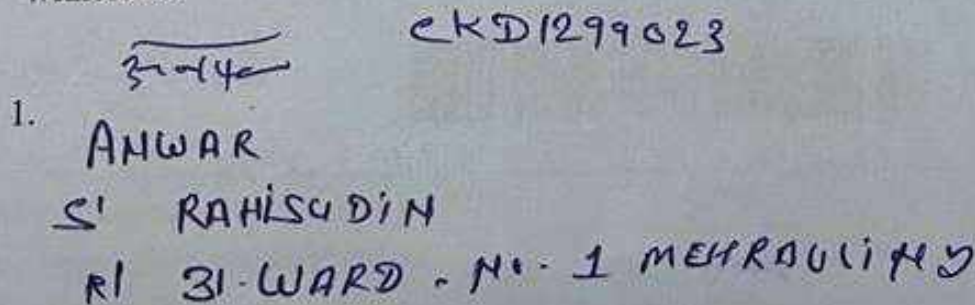 CKD1299023
1.
ANWAR
S' RAHISUDIN
R/ 31-WARD - NO. 1 MEHRAULI ND